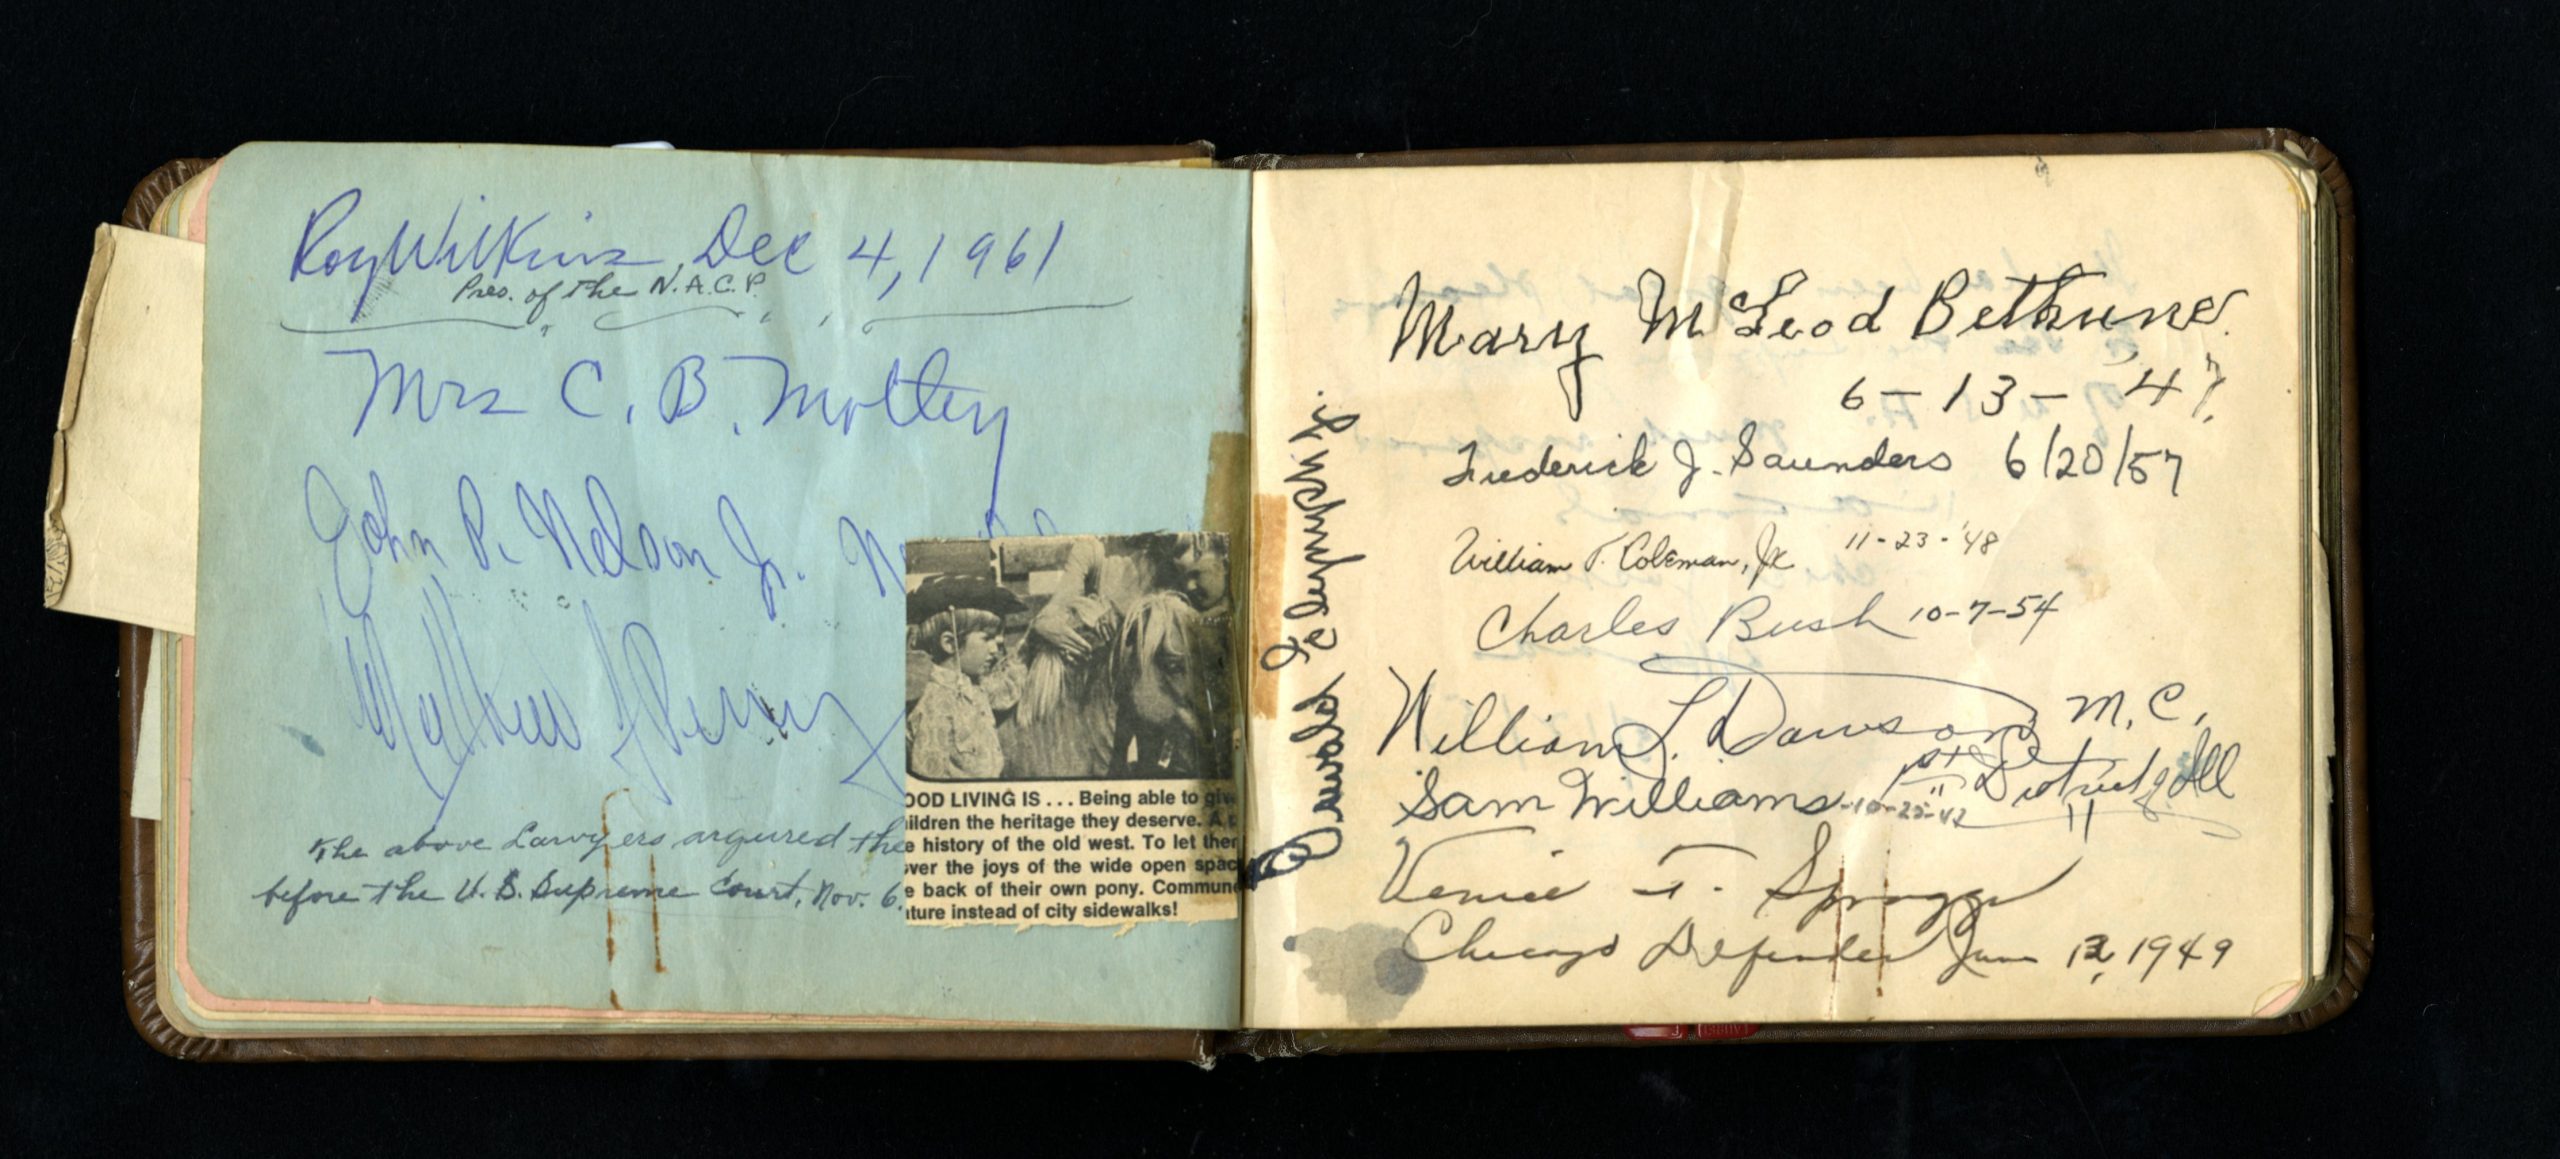 Roy Wilkins, Dec 4, 1961
Pres. of the N.A.C.P.
Mrs C. B. Motley
John P. Nelson Jr.
Matthew J Perry
The above Lawyers argured the
before the U.S. Supreme Court, Nov. 6.
OOD LIVING IS ... Being able to giv
ildren the heritage they deserve. A
e history of the old west. To let ther
ver the joys of the wide open spac
e back of their own pony. Commune
ture instead of city sidewalks!
Mary McLeod Bethune
6-13-'47.
Frederick J. Saunders 6/20/57
William T. Coleman, Jr. 11-23-'48
Charles Bush 10-7-54
William L. Dawson M.C.
1st District of Ill
Sam Williams -10-25-42
Venice T. Spraggs
Chicago Defender June 12, 1949
Oswald